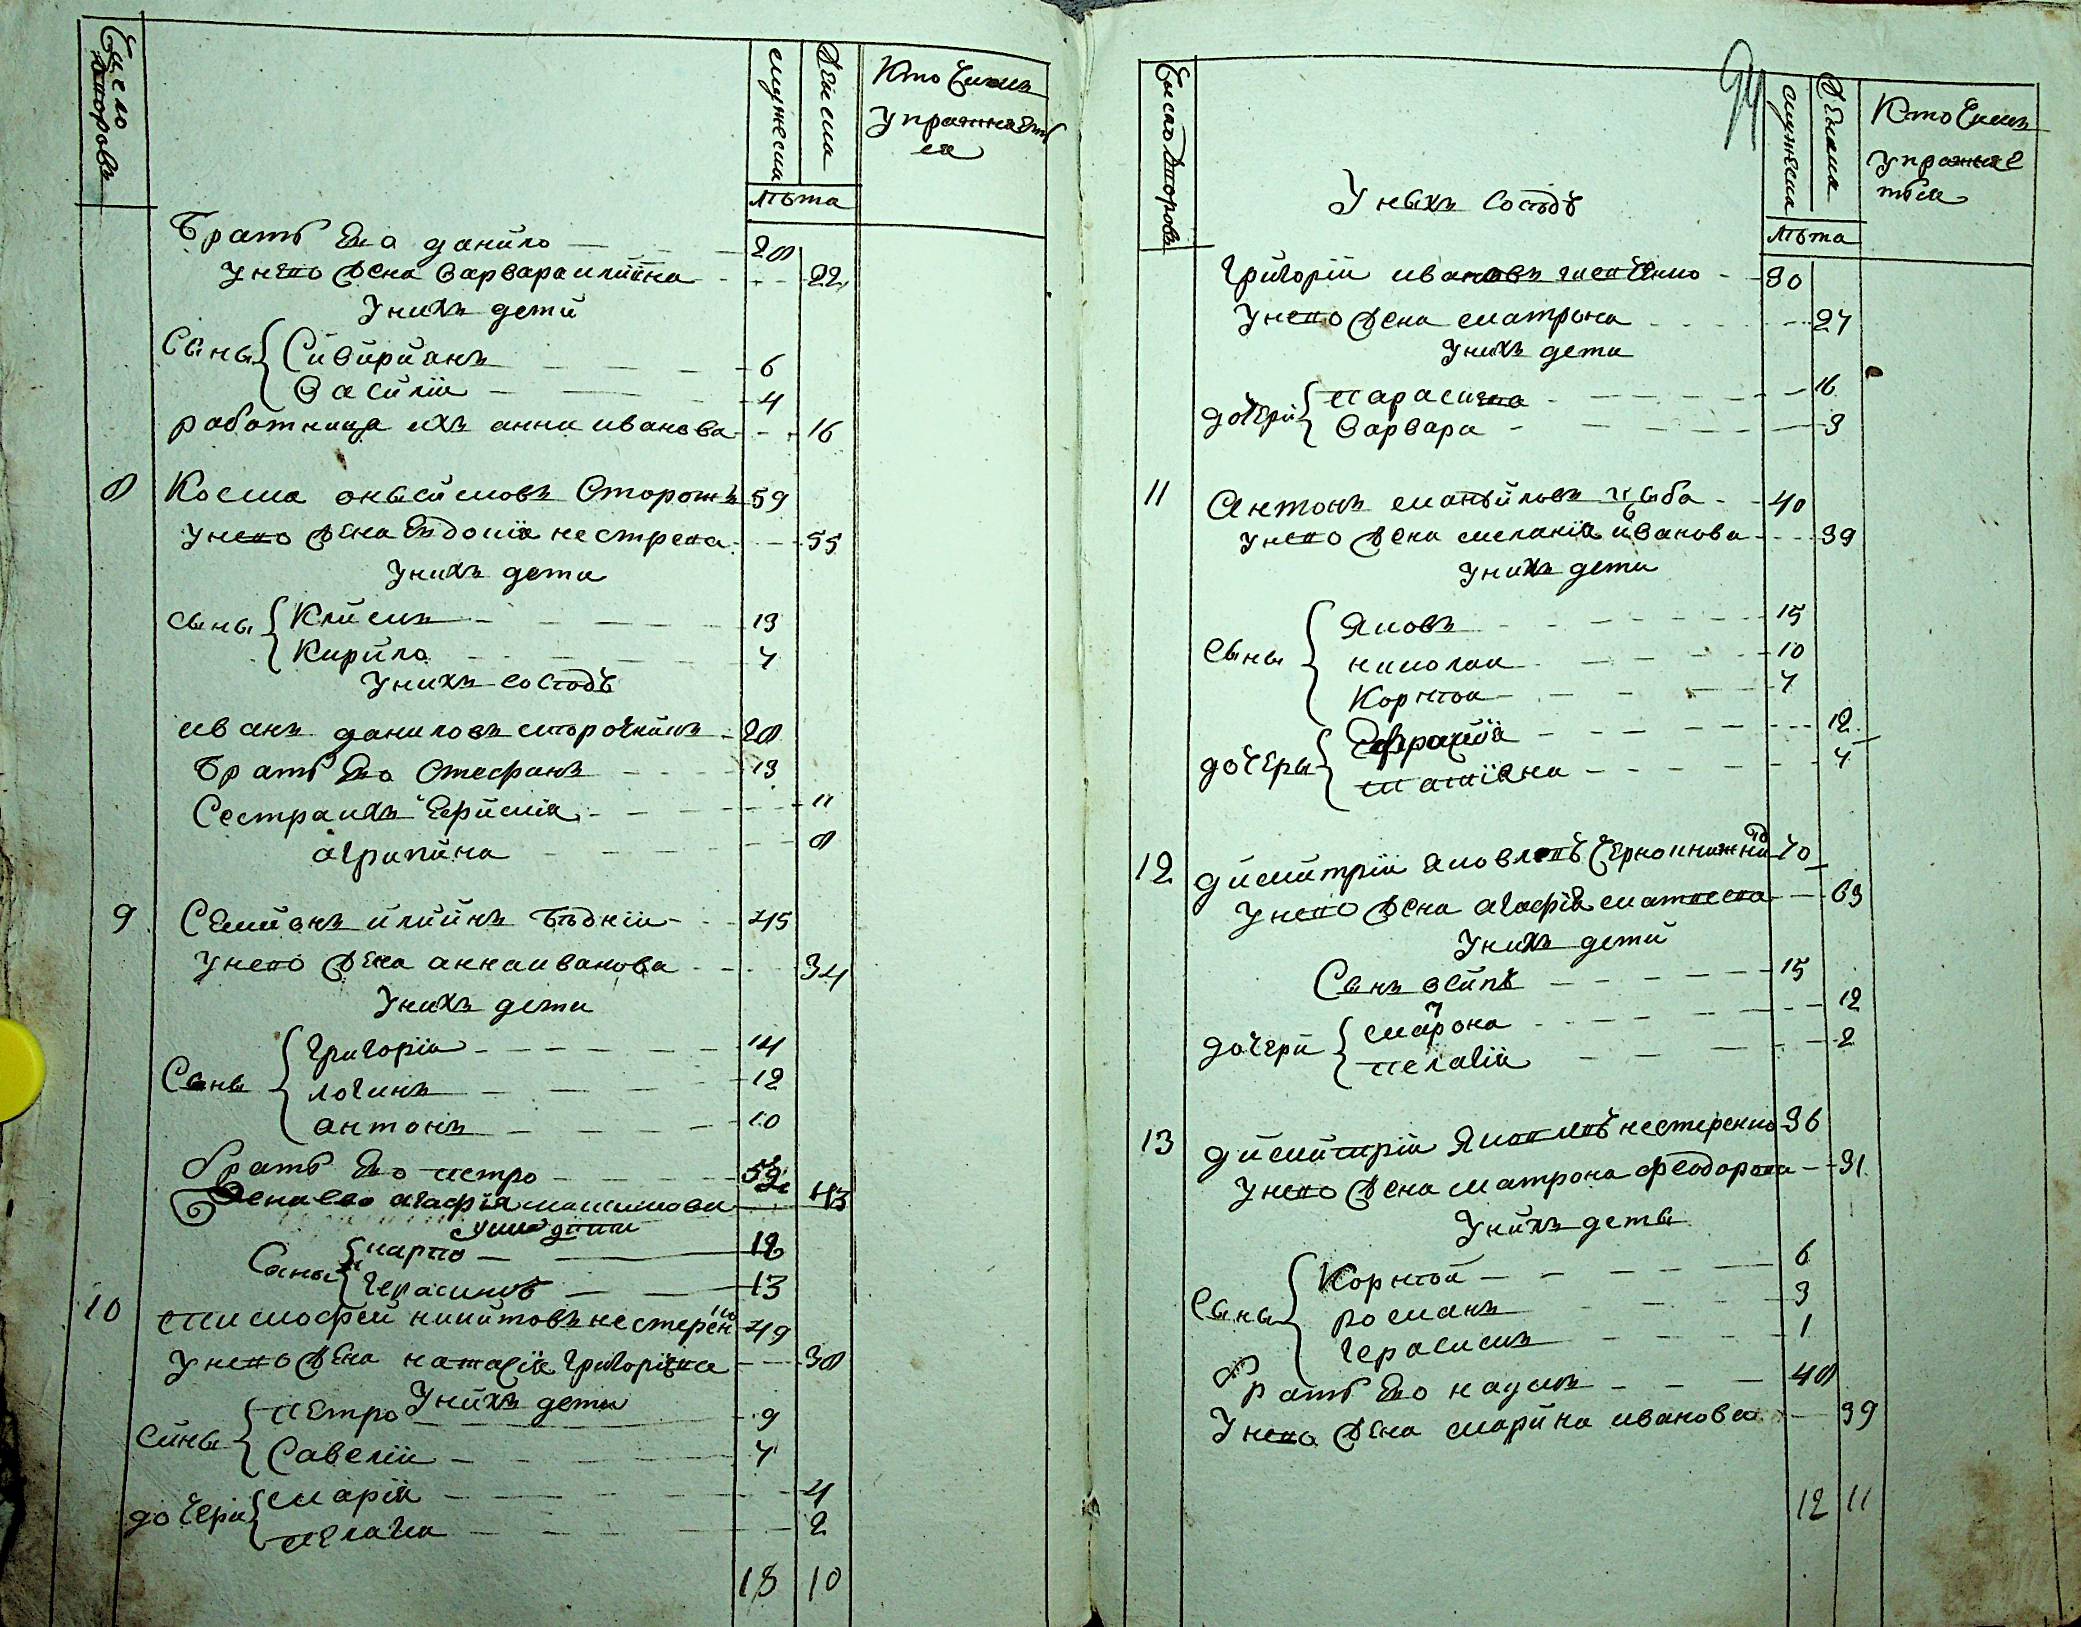 Число Дворовъ
мужеска
Женска
лѣта
Кто Чимъ
Упражняет
ся
Братъ Его данило 28
У него Жена Варвара илйна 22
У нихъ дети
Сыны Сивирйанъ 6
Василій 4
работница ихъ анна иванова 16
8 Косма онысимовъ Сторожъ 59
У него Жена Евдокія нестрева 55
У нихъ дети
сыны Клймъ 13
Кирйло 7
У нихъ Сосѣдъ
иванъ даниловъ 28
Братъ Его Стефанъ 13
Сестра ихъ Ефймія 11
агрипйна 8
9 Семйонъ илйинъ бѣдній 45
У него Жена анна иванова 34
У нихъ дети
Сыны Григорій 14
логинъ 12
антонъ 10
братъ Его петро 52
Жена его агафія 43
У них дети
Сыны карпо 18
герасимъ 13
10 тимофей никитовъ нестеренко 49
У него Жена наталія Григоріева 38
У нихъ дети
сйны петро 9
Савелій 7
дочери марія 4
пелагия 2
18 10
94
Число Дворовъ
мужеска
Женска
лѣта
Кто Чимъ
Упражняе
тся
У ныхъ Сосѣдъ
григорій ивановъ 30
У него Жена матрона 27
У нихъ дети
дочерй параскева 16
Варвара 3
11 Антонъ манойловъ цыба 40
У него Жена меланія йванова 39
У нихъ дети
Сыны Яковъ 15
николай 10
Корней 7
дочеры 12
татіяна 4
12 дймитрій Яковлевъ Чернокнижній 70
У него Жена агафія матвеева 63
У нихъ детй
Сынъ осйпъ 15
дочерй матрона 12
пелагія 2
13 дймйтрій Яковлевъ нестеренко 36
У него Жена матрона феодорова 31
У нйхъ деты
Сыны Корней 6
романъ 3
герасимъ 1
Братъ Его наумъ 48
У него Жена марйна иванова 39
12 11